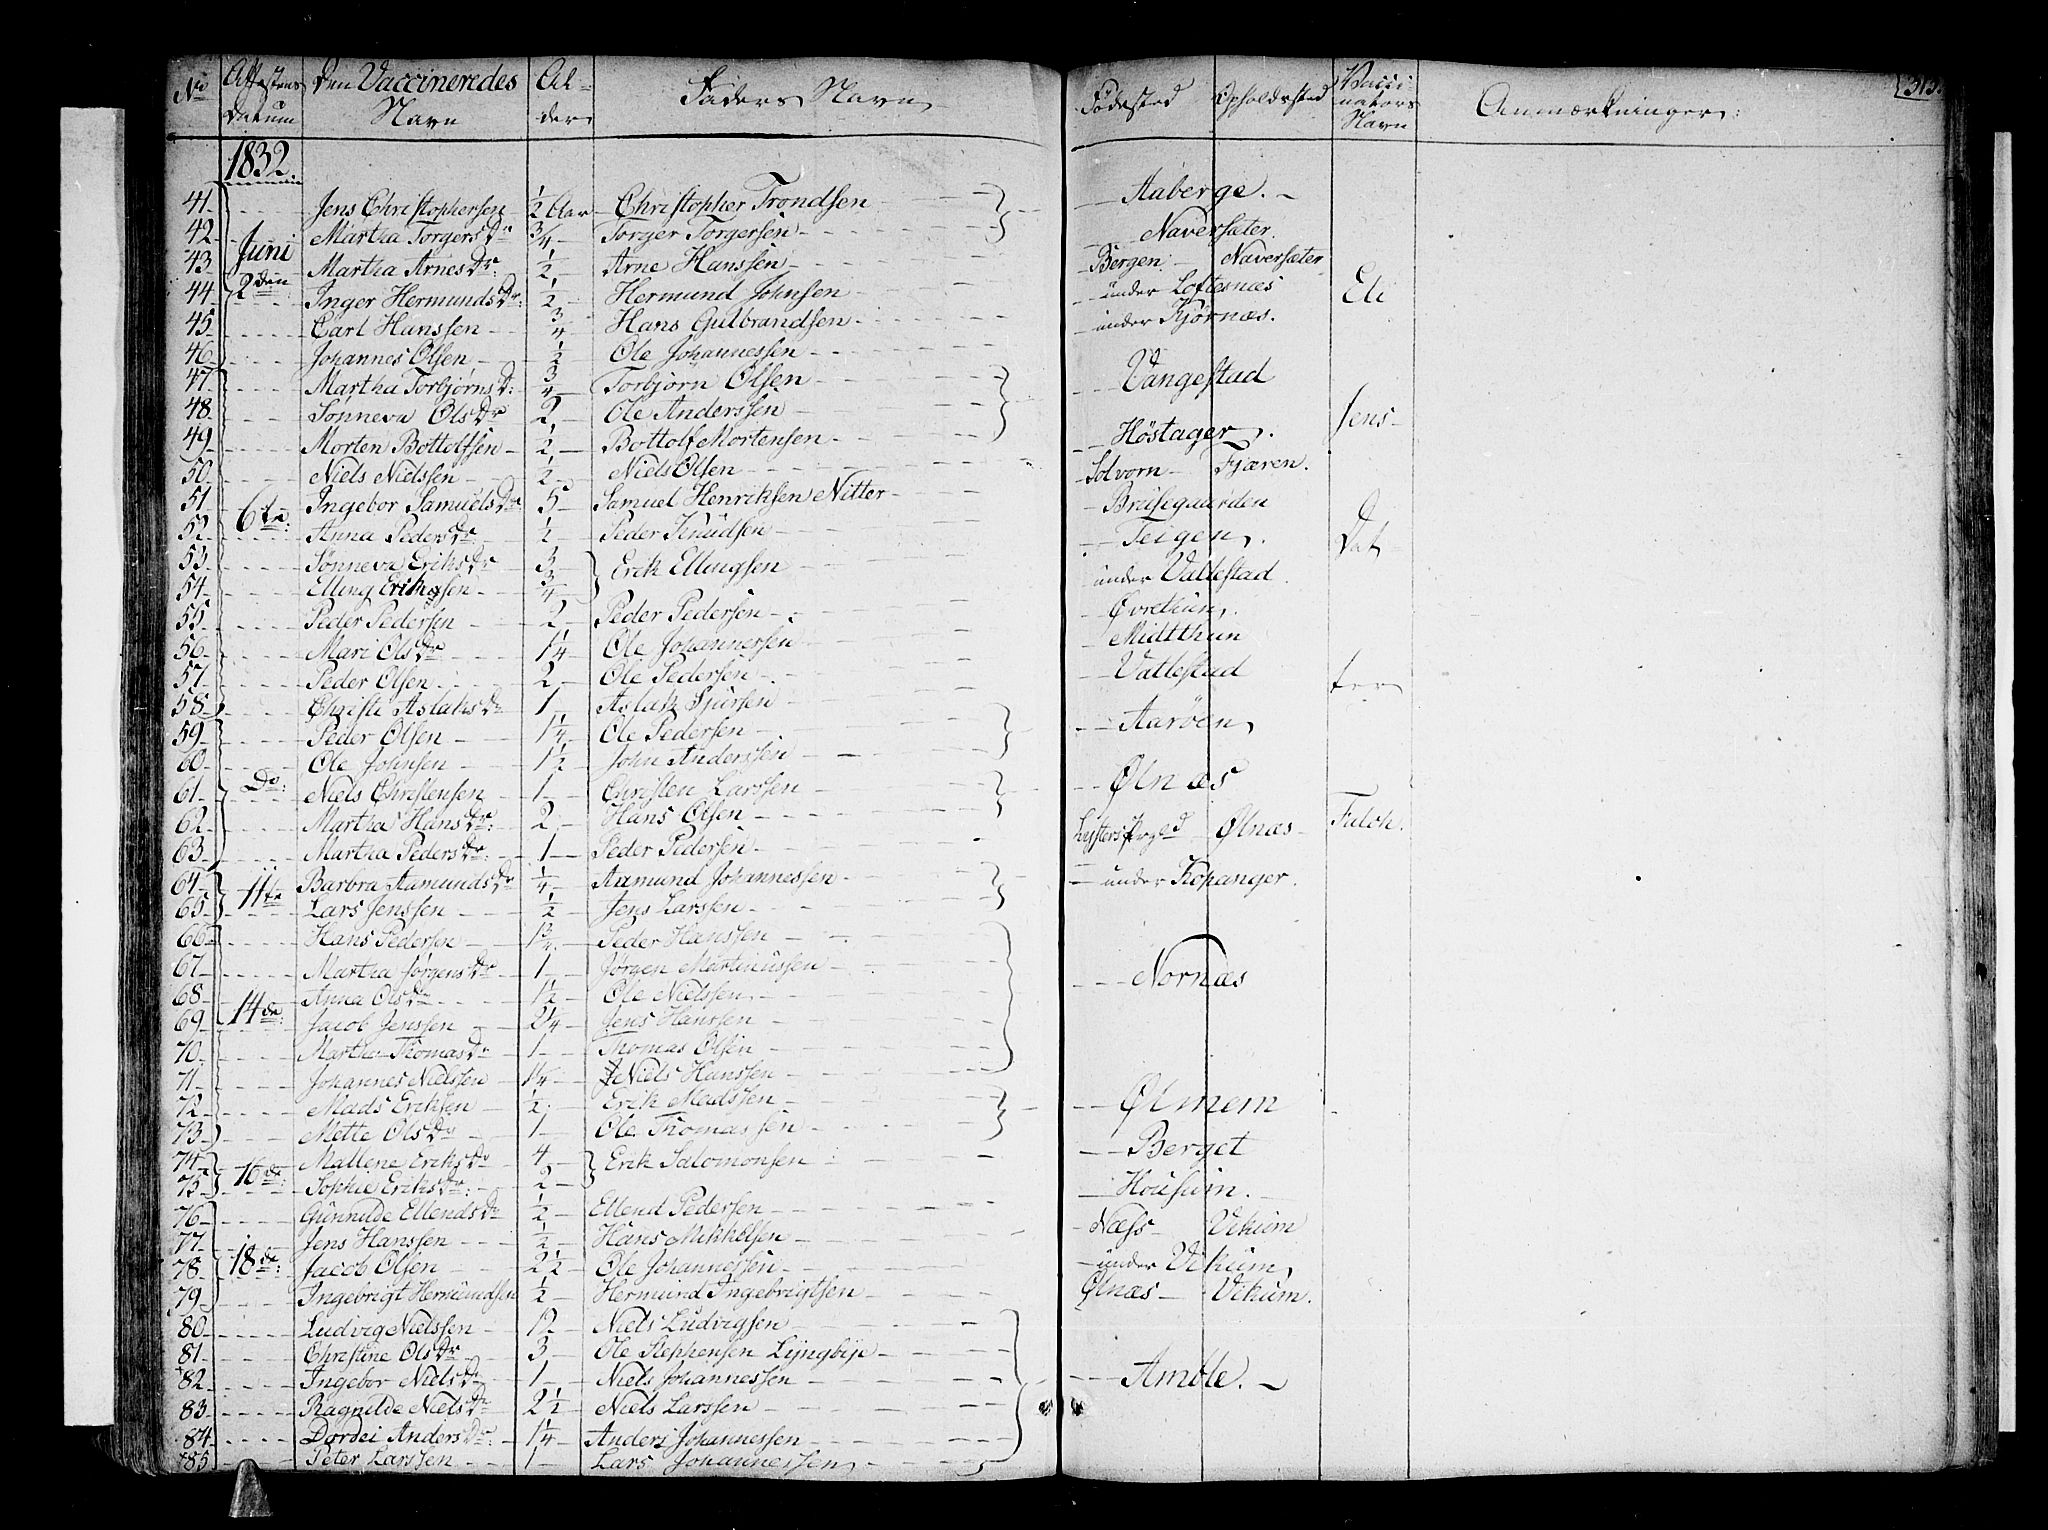 No Attestens Datum Den Vaccineredes Navn Alder Faders Navn Fødested Opholdssted Vaccinateurs Navn Anmærkninger 313
1832
41 Jens Christophersen 1/2 Aar Christopher Trondsen Aaberge
42 Martha Torgers Dr 3/4 Torger Torgersen Naversæter
Juni
43 Martha Arnes Dr: 1/2 Arne Hanssen Bergen Naversæter
2den
44 Inger Hermunds Dr 1/2 Hermund Johnsen under Loftesnæs
45 Carl Hanssen 3/4 Hans Gulbrandsen under Kjørnæs
46 Johannes Olsen 1/2 Ole Johannessen
47 Martha Torbjørns Dr: 3/4 Torbjörn Olsen Vangestad
48 Sønneva Ols Dr 2 Ole Anderssen
49 Morten Bottolfsen 1/2 Bottolf Mortensen Høstager Jens
50 Niels Nielssen 1/2 Niels Olsen Solvorn Fjæren
51 Ingebor Samuels Dr 5 Samuel Henriksen Nitter Brusegaarden
6te
52 Anna Peders Dr 1/2 Peder Knudsen Teigen
53 Sønneva Eriks Dr 3 Erik Ellingsen under Vallestad
54 Elling Eriksen 3/4
55 Peder Pedersen 2 Peder Pedersen Øvrethun
56 Mari Ols Dr 1 1/4 Ole Johannessen Midtthun
57 Peder Olsen 2 Ole Pedersen Vallestad
58 Christi Aslaks Dr 1 Aslak Sjursen
59 Peder Olsen 1 1/4 Ole Pedersen Aarøen
60 Ole Johnsen 1 1/2 John Anderssen
Do:
61 Niels Christensen 1 Christen Larssen Ølnæs
62 Martha Hans Dr: 2 Hans Olsen Lysters Prgjd Ølnæs Falch
63 Martha Peders Dr: 1 Peder Pedersen
64 Barbra Aamunds Dr 1/4 Aamund Johannessen under Kopanger
11te
65 Lars Jenssen 1/2 Jens Larssen
66 Hans Pedersen 1 3/4 Peder Hanssen
67 Martha Jørgens Dr 1 Jørgen Martinussen Nornæs
68 Anna Ols Dr 1 1/2 Ole Nielssen
14de
69 Jacob Jenssen 2 1/4 Jens Hanssen
70 Martha Thomas Dr 1 Thomas Olsen
71 Johannes Nielssen 1 1/4 Niels Hanssen
72 Mads Eriksen 1/2 Erik Madssen Ølmem
73 Mette Ols Dr 1 Ole Thomassen Berget
74 Mallene Eriks Dr 4 Erik Salomonsen
16de
75 Sophie Eriks Dr: 2 Housum
76 Gunnilde Ellends Dr 1/2 Ellend Pedersen
77 Jens Hanssen 1/2 Hans Mikkelsen Næss Vikum
18de
78 Jacob Olsen 2 1/2 Ole Johannessen under Vikum
79 Ingebrigt Hermundsen 1/2 Hermund Ingebrigtsen Ølnæs Vikum
80 Ludvig Nielssen 12 Niels Ludvigsen
81 Christine Ols Dr 3 Ole Stephensen Lyngbye
82 Ingebor Niels Dr 1 Niels Johannessen Amble
83 Ragnilde Niels Dr 2 1/2 Niels Larssen
84 Dordei Anders Dr: 1 1/4 Anders Johannessen
85 Peter Larssen 1 Lars Johannessen